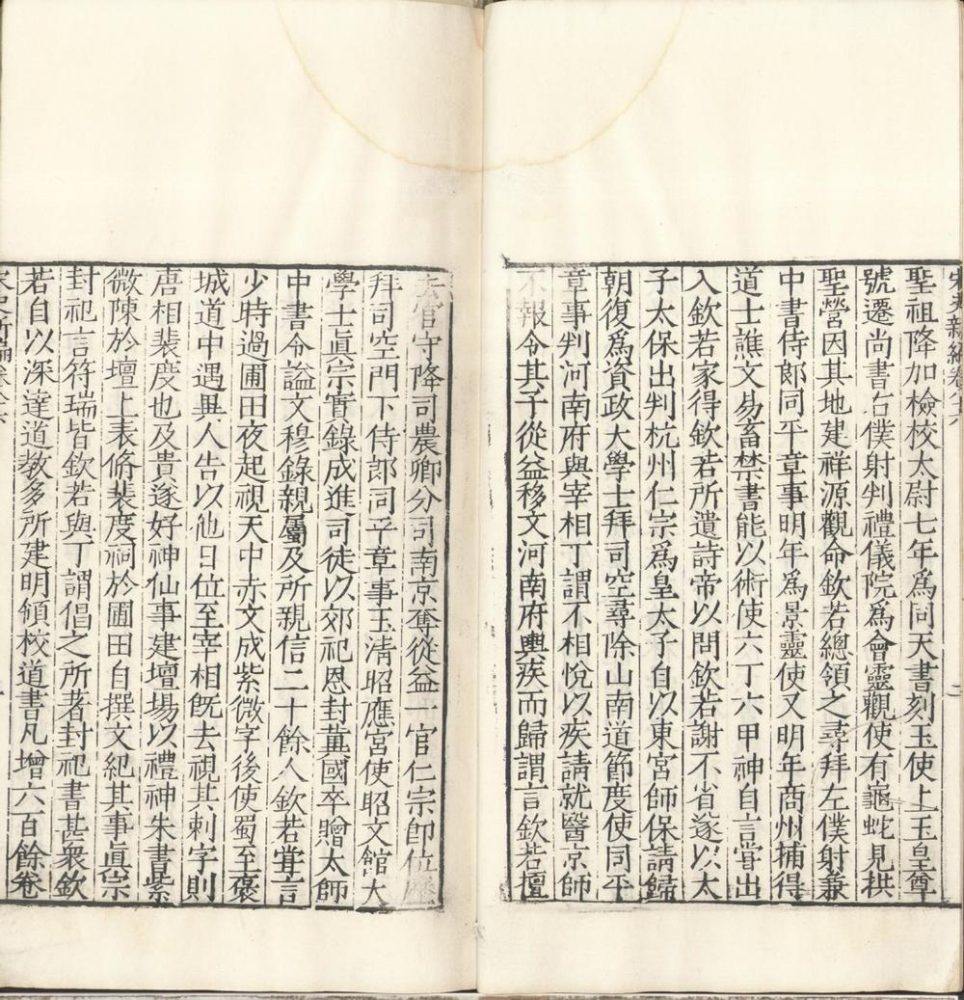 宋史新編卷八十八
聖祖降加檢校太尉七年爲同天書刻玉使上玉皇尊
號遷尚書右僕射判禮儀院爲會靈觀使有龜蛇見拱
聖營因其地建祥源觀命欽若總領之尋拜左僕射兼
中書侍郎同平章事明年爲景靈使又明年商州捕得
道士譙文易畜禁書能以術使六丁六甲神自言嘗出
入欽若家得欽若所遺詩帝以問欽若謝不省遂以太
子太保出判杭州仁宗爲皇太子自以東宮師保請歸
朝復爲資政大學士拜司空尋除山南道節度使同平
章事判河南府與宰相丁謂不相悅以疾請就醫京師
不報令其子從益移文河南府輿疾而歸謂言欽若擅
去官守降司農卿分司南京奪從益一官仁宗即位
拜司空門下侍郎同平章事玉清昭應宮使昭文館大
學士眞宗實錄成進司徒以郊祀恩封冀國卒贈太師
中書令謚文穆錄親屬及所親信二十餘人欽若嘗言
少時過圃田夜起視天中赤文成紫微字後使蜀至褒
城道中遇異人告以他日位至宰相旣去視其刺字則
唐相裴度也及貴遂好神仙事建壇場以禮神朱書紫
微陳於壇上表脩裴度祠於圃田自撰文紀其事眞宗
封祀言符瑞皆欽若與丁謂倡之所著封祀書甚衆欽
若自以深達道教多所建明領校道書凡增六百餘卷